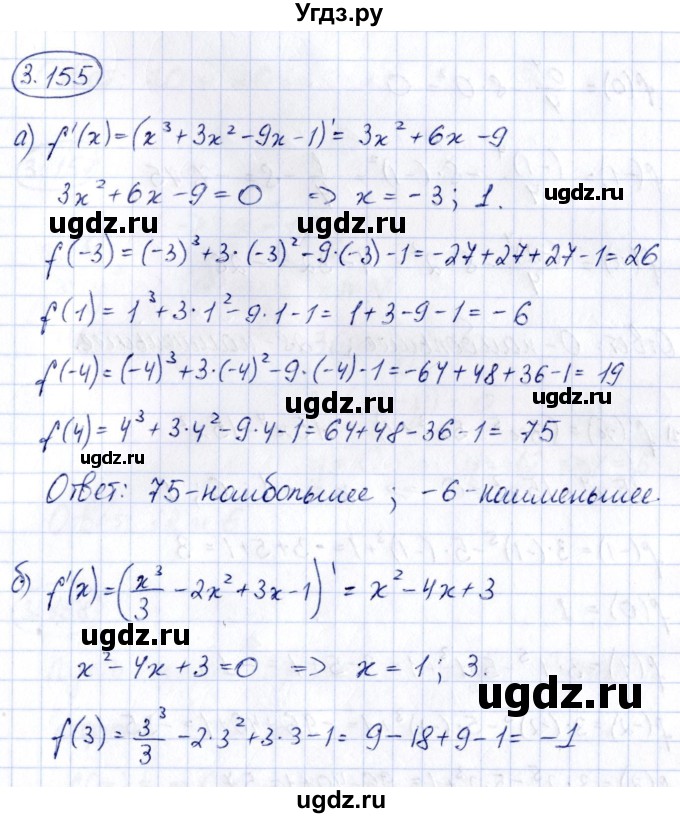 Угдз.ру
3.155
а) f'(x)=(x³+3x²-9x-1)'= 3x²+6x-9
3x²+6x-9=0 => x=-3; 1.
ugdz.ru
ugdz.ru ugdz.ru
f(-3)=(-3)³+3·(-3)²-9·(-3)-1=-27+27+27-1=26
f(1)=1³+3·1²-9·1-1=1+3-9-1=-6
f(-4)=(-4)³+3·(-4)²-9·(-4)-1=-64+48+36-1=19
ugdz.ru
f(4)=4³+3·4²-9·4-1=64+48-36-1=75
ugdz.ru
Ответ: 75-наибольшее; -6-наименьшее.
б) f'(x)=(x³/3-2x²+3x-1)'=x²-4x+3
ugdz.ru
x²-4x+3=0 => x=1; 3.
ugdz.ru
f(3)=3³/3-2·3²+3·3-1=9-18+9-1=-1
ugdz.ru
ugdz.ru